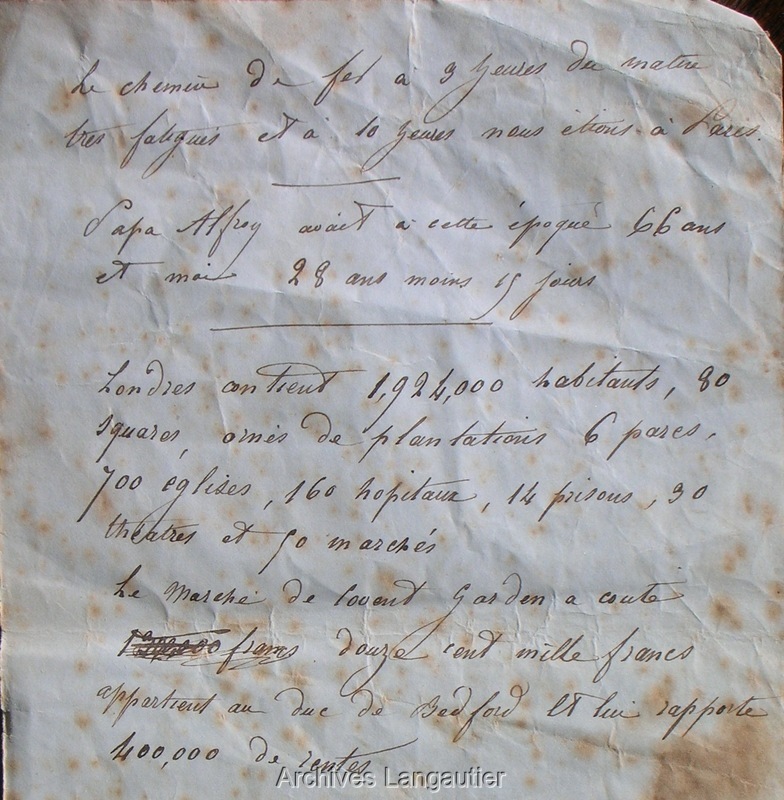 Le chemin de fer à 3 heures du matin
très fatigués et à 10 heures nous étions à Paris.
Papa Alfroy avait à cette époque 66 ans
et moi 28 ans moins 15 jours
Londres contient 1,924,000 habitants, 80
squares, ornés de plantations 6 parcs,
700 églises, 160 hopitaux, 14 prisons, 30
théatres et 50 marchés
Le Marché de Covent Garden a couté
francs douze cent mille francs
appartient au duc de Bedford et lui rapporte
400,000 de rentes
Archives Langautier